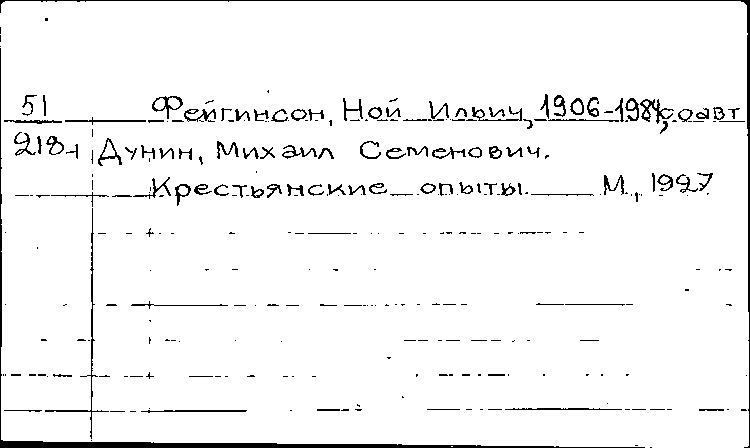 51 Фейгинсон, Ной Ильич, 1906-1984, соавт
218-1 Дунин, Михаил Семенович.
Крестьянские опыты М, 1927